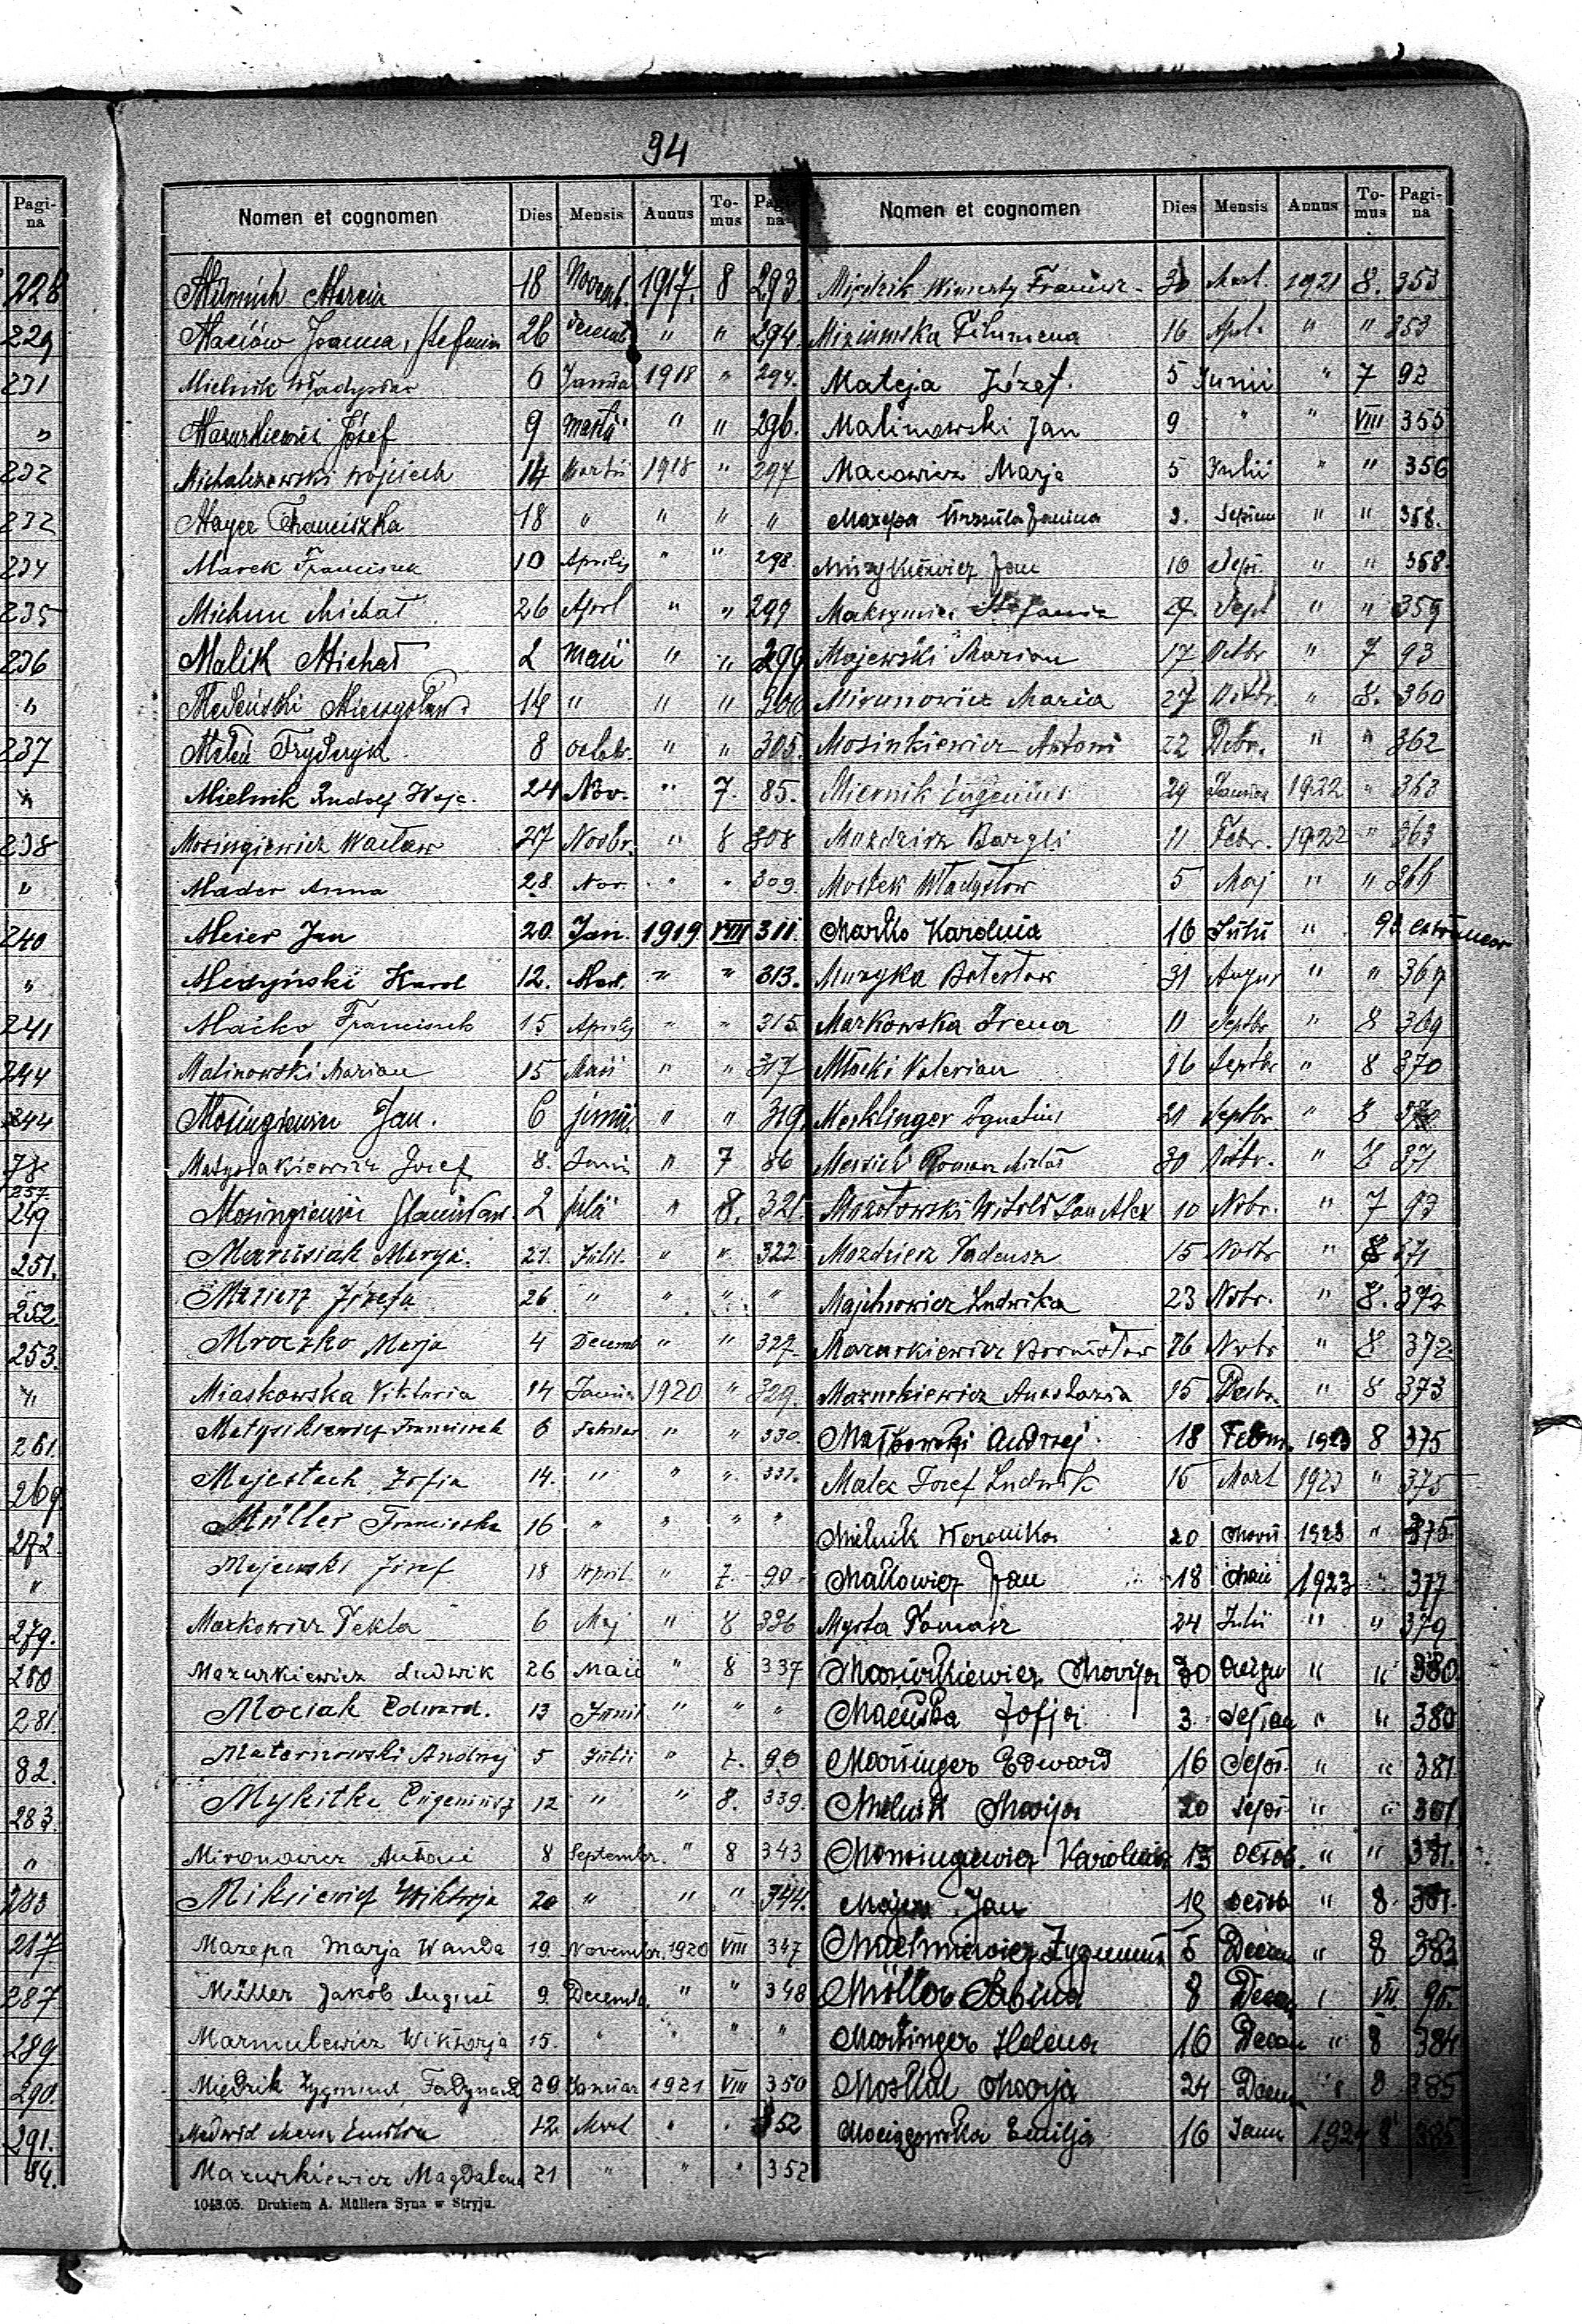 94
Pagi-na
228
229
231
"
232
232
234
235
236
"
237
"
238
"
240
"
241
244
244
78
257
249
251.
252.
253.
"
261.
269
272
"
279.
280
281.
82.
283.
"
283
217
287
289
290.
291.
84.
Nomen et cognomen Dies Mensis Annus To-mus Pagi-na
Marcin 18 Novemb. 1917. 8 293.
Maciów Joanna, Stefania 26 Decemb. " " 294.
Mielnik Władysław 6 Janua 1918 " 294.
Mazurkiewicz Józef 9 " " 296.
Michalczewski Wojciech 14 Martii 1918 " 297
Franciszka 18 " " " "
Marek Franciszek 10 Aprilis " " 298.
Michał 26 Aprl " " 299
Malik Michał 2 Maii " " 299
Mieczysław 14 " " " 300
Fryderyk 8 octobr. " " 305.
Mielnik Rudolf Wojc. 24 Nov. " 7. 85.
Mosingiewicz Wacław 27 Novbr. " 8 308
Mader Anna 28. Nov. " " 309.
Meier Jan 20. Jan. 1919 VIII 311.
Medyński Karol 12. Mart. " " 313.
Maćko Franciszek 15 Aprilis " " 315.
Malinowski Marian 15 Maii " " 317
Mosingiewicz Jan. 6 junii. " " 319.
Matysiakiewicz Josef 8. Junii " 7 86
Mosingiewicz Stanisław. 2 julii " 8. 321.
Marusiak Marya. 21. Julii. " ". 322
Józefa 26 " " " "
Mroczko Marja 4 Decemb " " 327.
Miaskowska Viktoria 14 Januar 1920 " 329.
Matysikiewicz Franciszek 6 Februar " " 330.
Majestach Zofia 14. " " ". 331.
Müller Franciszka 16 " " " "
Majewski Józef 18 April " 7. 90
Markowicz Tekla 6 Maj " 8 336
Mazurkiewicz Ludwik 26 Maii " 8 337
Mociak Edward. 13 Junii " " "
Maternowski Andrzej 5 Julii " 7. 90
Mykitka Eugeniusz 12 " " 8. 339.
Mironowicz Antoni 8 Septembr. " 8 343
Miksiewicz Wiktorja 20 " " " 344.
Mazepa Marja Wanda 19. Novembr. 1920 VIII 347
Müller Jakób August 9. Decemb. " " 348
Marmulewicz Wiktorja 15. " " " "
Miedzik Zygmunt Ferdynand 29. Januar 1921 VIII 350
Medwid Maria 12. Mart " " 352
Mazurkiewicz Magdalena 21 " " " 352
1043.05. Drukiem A. Müllera Syna w Stryju.
Nomen et cognomen Dies Mensis Annus To-mus Pagi-na
30 Mart. 1921 8. 353
Filomena 16 Apl. " " 353
Mateja Józef. 5 Junii " 7 92
Malinowski Jan 9 " " VIII 355
Macowicz Marja 5 Julii " " 356
Mazepa Urszula Janina 2. Septem " " 358.
Muzykiewicz Jan 10 Sept. " " 358.
Stefania 27. Sept " " 359
Majewski Marian 17 Octbr " 7 93
Mironowicz Maria 27 Octbr. " 8. 360
Mosinkiewicz Antoni 22 Dcbr. " " 362
Miernik Eugeniusz 29 Januar 1922 " 363
11 Febr. 1922 " 363
Mostek Władysław 5 Maj " " 366
Marko Karolina 16 Julii " 93
Muzyka Bolesław 31 Augus " " 367
Markowska Irena 11 Septbr " 8 369
Młocki Valerian 16 Septbr " 8 370
Merklinger Ignatius 21 Septbr. " 8
Roman 30 Octbr. " 8 371
Witold Jan Alex 10 Nvbr. " 7 93
Mozdzierz Tadeusz 15 Novbr " 8 371
Majchrowicz Ludwika 23 Nvbr. " 8. 372
Mazurkiewicz Bronisław 26 Nvbr " 8 372
Mazurkiewicz Anastazia 15 Decbr. " 8 373
Małkowski Andrzej 18 Febru. 1923 8 375
Malec Josef Ludwik 15 Mart 1923 " 375
Mielnik Weronika 20 Martii 1923 " 375
Małlowicz Jan 18 Maii 1923 " 377
Myrta Tomasz 24 Julii " " 379
Mazurkiewicz Marija 30 Augu " " 380
Zofja 3. Septem " " 380
Marsinger Edward 16 Sept. " " 381
Mielnik Marija 20 Sept " " 381
Monsingiewicz Karolina 13 Octob. " " 381.
Majer Jan 19 Octob " 8 381.
Machniewicz Zygmunt 5 Decem " 8 383
Möller Sabina 8 Decem " VII. 95.
Marsinger Helena 16 Decem " 8 384
Moskal Marja 24 Decem " 8 385
Mociągowska Emilja 16 Janu 1924 8 385